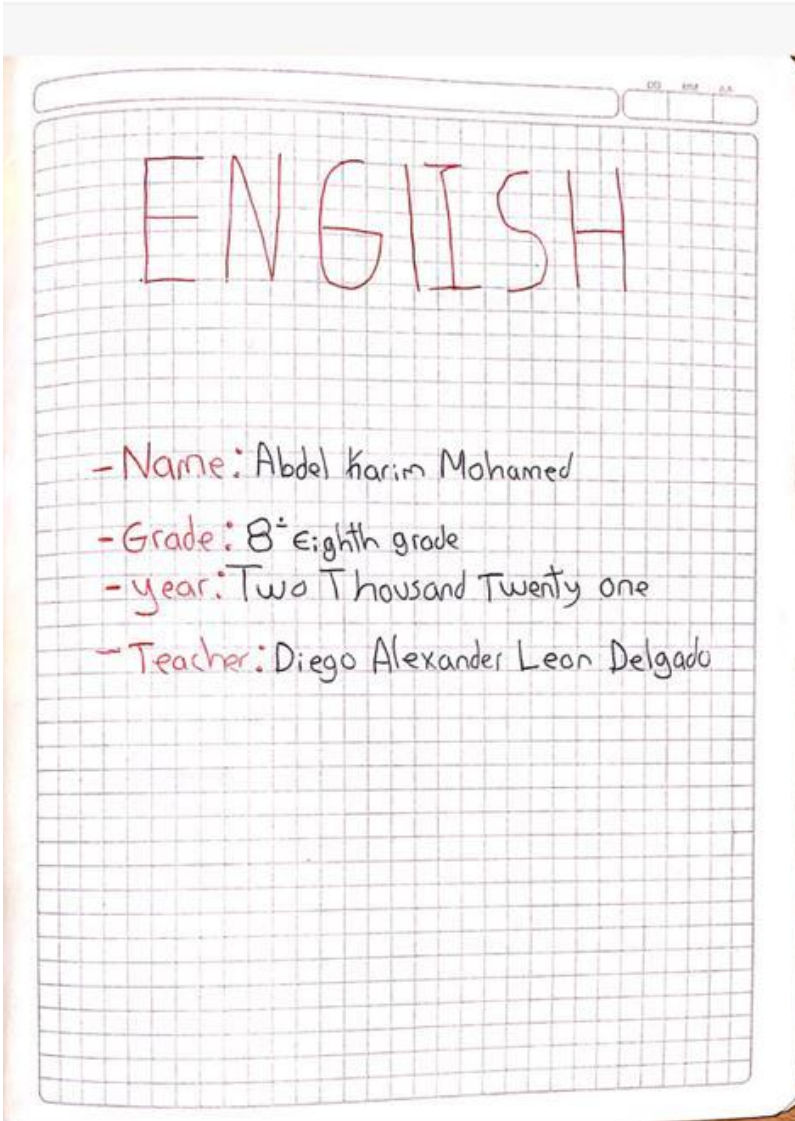 DD MM AA
ENGlISH
- Name: Abdel Karim Mohamed
- Grade: 8° Eighth grade
- year: Two Thousand Twenty one
- Teacher: Diego Alexander Leon Delgado